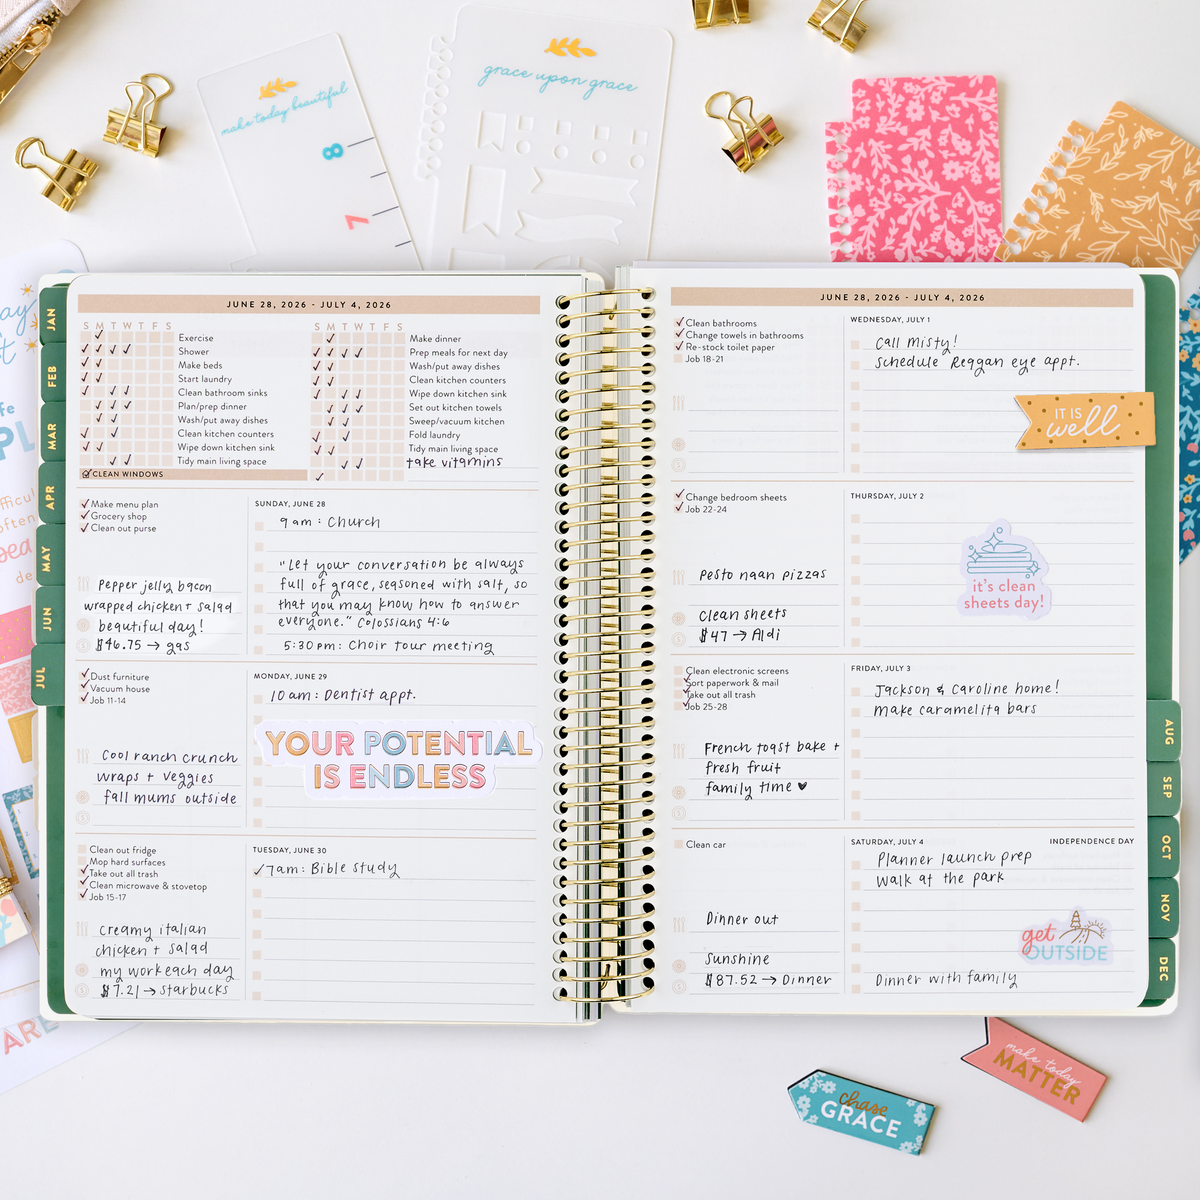 make today beautiful
8
7
grace upon grace
JAN
FEB
MAR
APR
MAY
JUN
JUL
JUNE 28, 2026 - JULY 4, 2026
S M T W T F S
Exercise
Shower
Make beds
Start laundry
Clean bathroom sinks
Plan/prep dinner
Wash/put away dishes
Clean kitchen counters
Wipe down kitchen sink
Tidy main living space
CLEAN WINDOWS
S M T W T F S
Make dinner
Prep meals for next day
Wash/put away dishes
Clean kitchen counters
Wipe down kitchen sink
Set out kitchen towels
Sweep/vacuum kitchen
Fold laundry
Tidy main living space
take vitamins
Make menu plan
Grocery shop
Clean out purse
Pepper jelly bacon
wrapped chicken + salad
beautiful day!
$46.75 → gas
SUNDAY, JUNE 28
9 am: Church
"Let your conversation be always
full of grace, seasoned with salt, so
that you may know how to answer
everyone." Colossians 4:6
5:30 pm: Choir tour meeting
Dust furniture
Vacuum house
Job 11-14
Cool ranch crunch
wraps + veggies
fall mums outside
MONDAY, JUNE 29
10 am: Dentist appt.
YOUR POTENTIAL
IS ENDLESS
Clean out fridge
Mop hard surfaces
Take out all trash
Clean microwave & stovetop
Job 15-17
creamy italian
chicken + salad
my workeach day
$7.21 → Starbucks
TUESDAY, JUNE 30
7am: Bible study
JUNE 28, 2026 - JULY 4, 2026
Clean bathrooms
Change towels in bathrooms
Re-stock toilet paper
Job 18-21
WEDNESDAY, JULY 1
Call Misty!
Schedule Reagan eye appt.
IT IS
well
Change bedroom sheets
Job 22-24
Pesto naan pizzas
Clean sheets
$47 → Aldi
THURSDAY, JULY 2
it's clean
sheets day!
Clean electronic screens
Sort paperwork & mail
Take out all trash
Job 25-28
French toast bake +
fresh fruit
family time ♥
FRIDAY, JULY 3
Jackson & Caroline home!
make caramelita bars
Clean car
Dinner out
Sunshine
$87.52 → Dinner
SATURDAY, JULY 4
INDEPENDENCE DAY
Planner launch prep
Walk at the park
get
OUTSIDE
Dinner with family
AUG
SEP
OCT
NOV
DEC
make today
MATTER
chase
GRACE